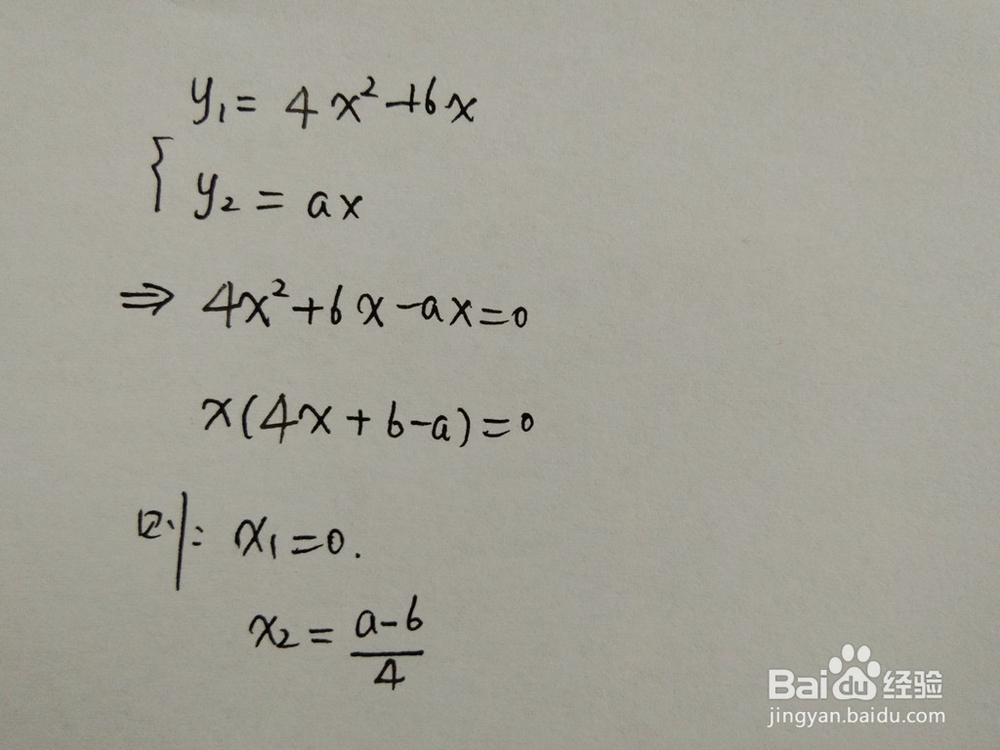 y₁= 4x²+6x
{ y₂ = ax
⇒ 4x²+6x-ax=0
x(4x+6-a)=0
则: x₁=0.
x₂ = (a-6)/4
Baidu经验
jingyan.baidu.com